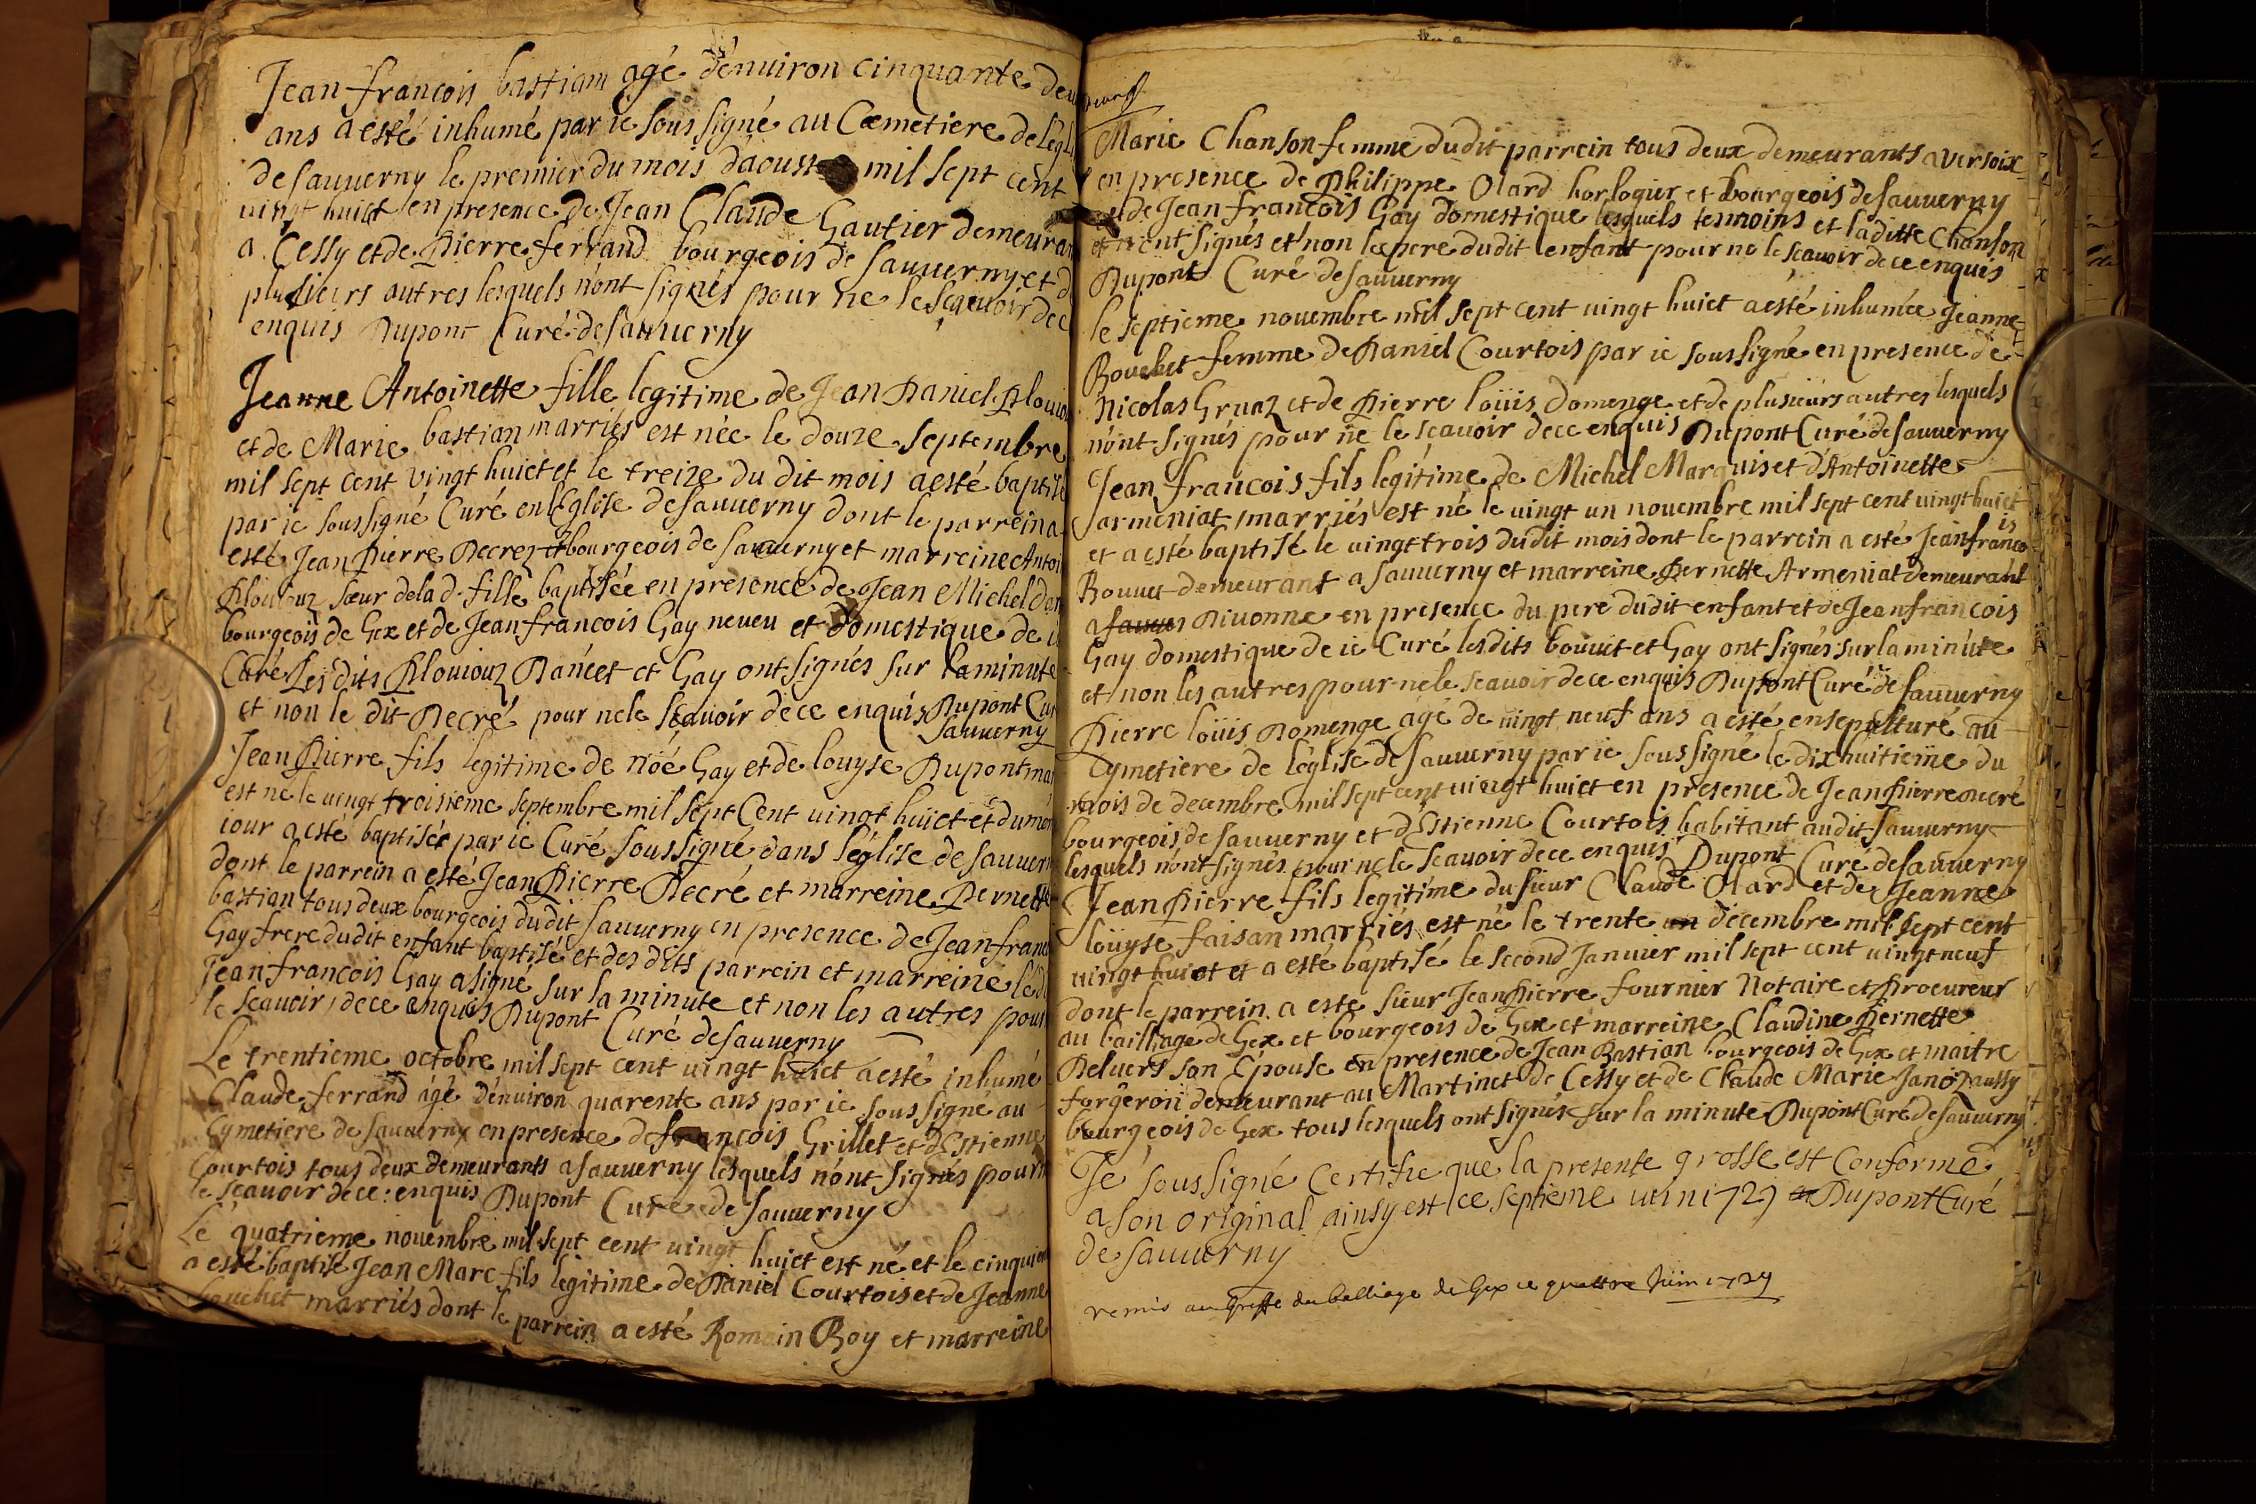 Jean francois bastiam agé d'enuiron cinquante deu
ans a esté inhumé par ie sous signé au Cœmetiere de l'egl
de sauuerny le premier du mois d'aoust mil sept cent
uingt huict en presence de Jean Claude Gautier demeuran
a Cessy et de Pierre ferrand bourgeois de sauuerny et d
plusieurs autres lesquels n'ont signés pour ne le scauoir de c
enquis Dupont Curé de sauuerny
Jeanne Antoinette fille legitime de Jean Daniel
et de Marie bastian marriés est née le douze septembre
mil sept cent vingt huict et le treize du dit mois a esté baptisé
par ie soussigné Curé en l'Eglise de sauuerny dont le parrein a
esté Jean Pierre Decrez bourgeois de sauuerny et marreine Antoi
sœur de la d. fille baptisée en presence de Jean Michel
bourgeois de Gex et de Jean francois Gay neueu et domestique de
Curé Lesdits et Gay ont signés sur la minute
et non le dit Decré pour ne le scauoir de ce enquis Dupont Cur
sauuerny
Jean Pierre fils legitime de Nöé Gay et de louyse Dupont mar
est né le vingt troisieme septembre mil sept Cent vingt huict et du mem
iour a esté baptisée par ie Curé soussigné dans l'église de sauuern
dont le parrein a esté Jean Pierre Decré et marreine Pernette
bastian tous deux bourgeois dudit sauuerny en presence de Jean franc
Gay frere dudit enfant baptisé et des dits parrein et marreine le d
Jean francois Gay a signé sur la minute et non les autres pour
le scauoir, de ce enquis Dupont Curé de sauuerny
Le trentieme octobre mil sept cent vingt huict a esté inhumé
Claude ferrand agé d'enuiron quarente ans par ie sous signé au
Cymetiere de sauuerny en presence de francois Grillet et d'Estienne
Courtois tous deux demeurants a sauuerny lesquels n'ont signés pour n
le scauoir de ce : enquis Dupont Curé de sauuerny
Le quatrieme nouembre mil sept cent uingt huict est né et le cinquiem
a esté baptisé Jean Marc fils legitime de Daniel Courtois et de Jeanne
bouchet marriés dont le parrein a esté Romain Roy et marreine
Marie Chanson femme dudit parrein tous deux demeurants a versoix
en presence de Philippe Olard horlogier et bourgeois de sauuerny
et de Jean francois Gay domestique lesquels tesmoins et laditte Chanson
signés et non le pere dudit enfant pour ne le scauoir de ce enquis
Dupont Curé de sauuerny
le septieme nouembre mil sept cent uingt huict a esté inhumée Jeanne
Bouchet femme de Daniel Courtois par ie soussigné en presence de
Nicolas Gruaz et de Pierre loüis domenge et de plusieurs autres lesquels
n'ont signés pour ne le scauoir de ce enquis Dupont Curé de sauuerny
Jean francois fils legitime de Michel Marquis et d'Antoinette
Jarmeniat marriés est né le uingt un nouembre mil sept cent uingt huict
et a esté baptisé le uingt trois dudit mois dont le parrein a esté Jean francois
Bouuet demeurant a sauuerny et marreine Pernette Armeniat demeurant
a Diuonne en presence du pere dudit enfant et de Jean francois
Gay domestique de ie Curé lesdits bouuet et Gay ont signés sur la minute
et non les autres pour ne le scauoir de ce enquis Dupont Curé de sauuerny
Pierre loüis Domenge agé de uingt neuf ans a esté ensepulturé au
Cymetiere de l'église de sauuerny par ie sous signé le dix huitieme du
mois de decembre mil sept cent uingt huict en presence de Jean Pierre Decré
bourgeois de sauuerny et d'Estienne Courtois habitant audit sauuerny
lesquels n'ont signés pour ne le scauoir de ce enquis Dupont Curé de sauuerny
Jean Pierre fils legitime du sieur Claude Olard et de Jeanne
loüyse faisan marriés est né le trente decembre mil sept cent
uingt huict et a esté baptisé le second Januier mil sept cent uingt neuf
dont le parrein a esté sieur Jean Pierre fournier Notaire et Procureur
au bailliage de Gex et bourgeois de Gex et marreine Claudine Pernette
Deluers son Epouse en presence de Jean Bastian bourgeois de Gex et maitre
forgeron demeurant au Martinet de Cessy et de Claude Marie aussy
bourgeois de Gex tous lesquels ont signés sur la minute Dupont Curé de sauuerny
Je soussigné Certifie que la presente grosse est Conforme
a son original ainsy est ce septieme 1729 Dupont Curé
de sauuerny
remis au Greffe du balliage de Gex ce quattre Juin 1729